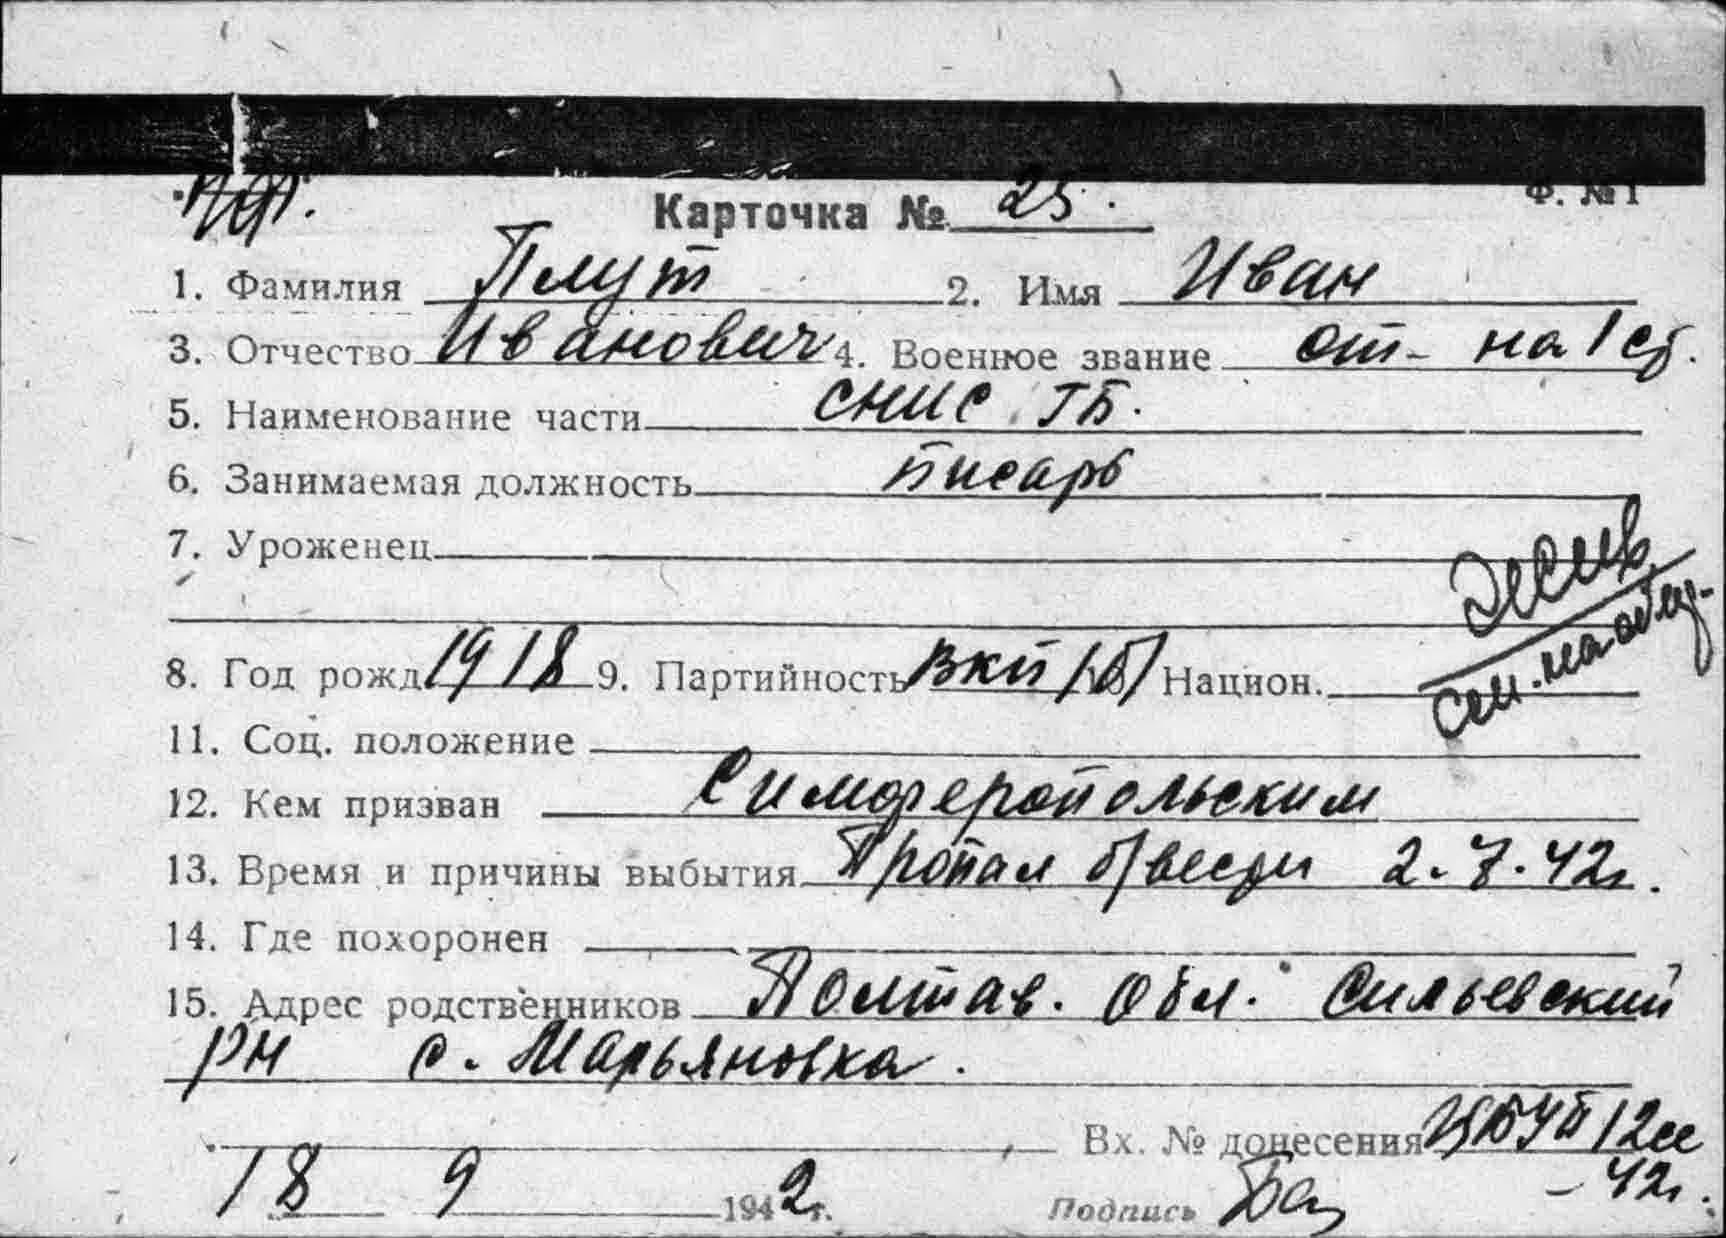 Карточка № 25.
Ф. №1
1. Фамилия Плут 2. Имя Иван
3. Отчество Иванович 4. Военное звание от-на 1 ст.
5. Наименование части СНИС ГБ.
6. Занимаемая должность писарь
7. Уроженец
8. Год рожд. 1918 9. Партийность ВКП/б/ Национ.
11. Соц. положение
12. Кем призван Симферопольским
13. Время и причины выбытия Пропал б/вести 2.7.42г.
14. Где похоронен
15. Адрес родственников Полтав. обл. Сильевский
рн с. Марьяновка.
Вх. № донесения
18 9 1942г. Подпись
-42г.